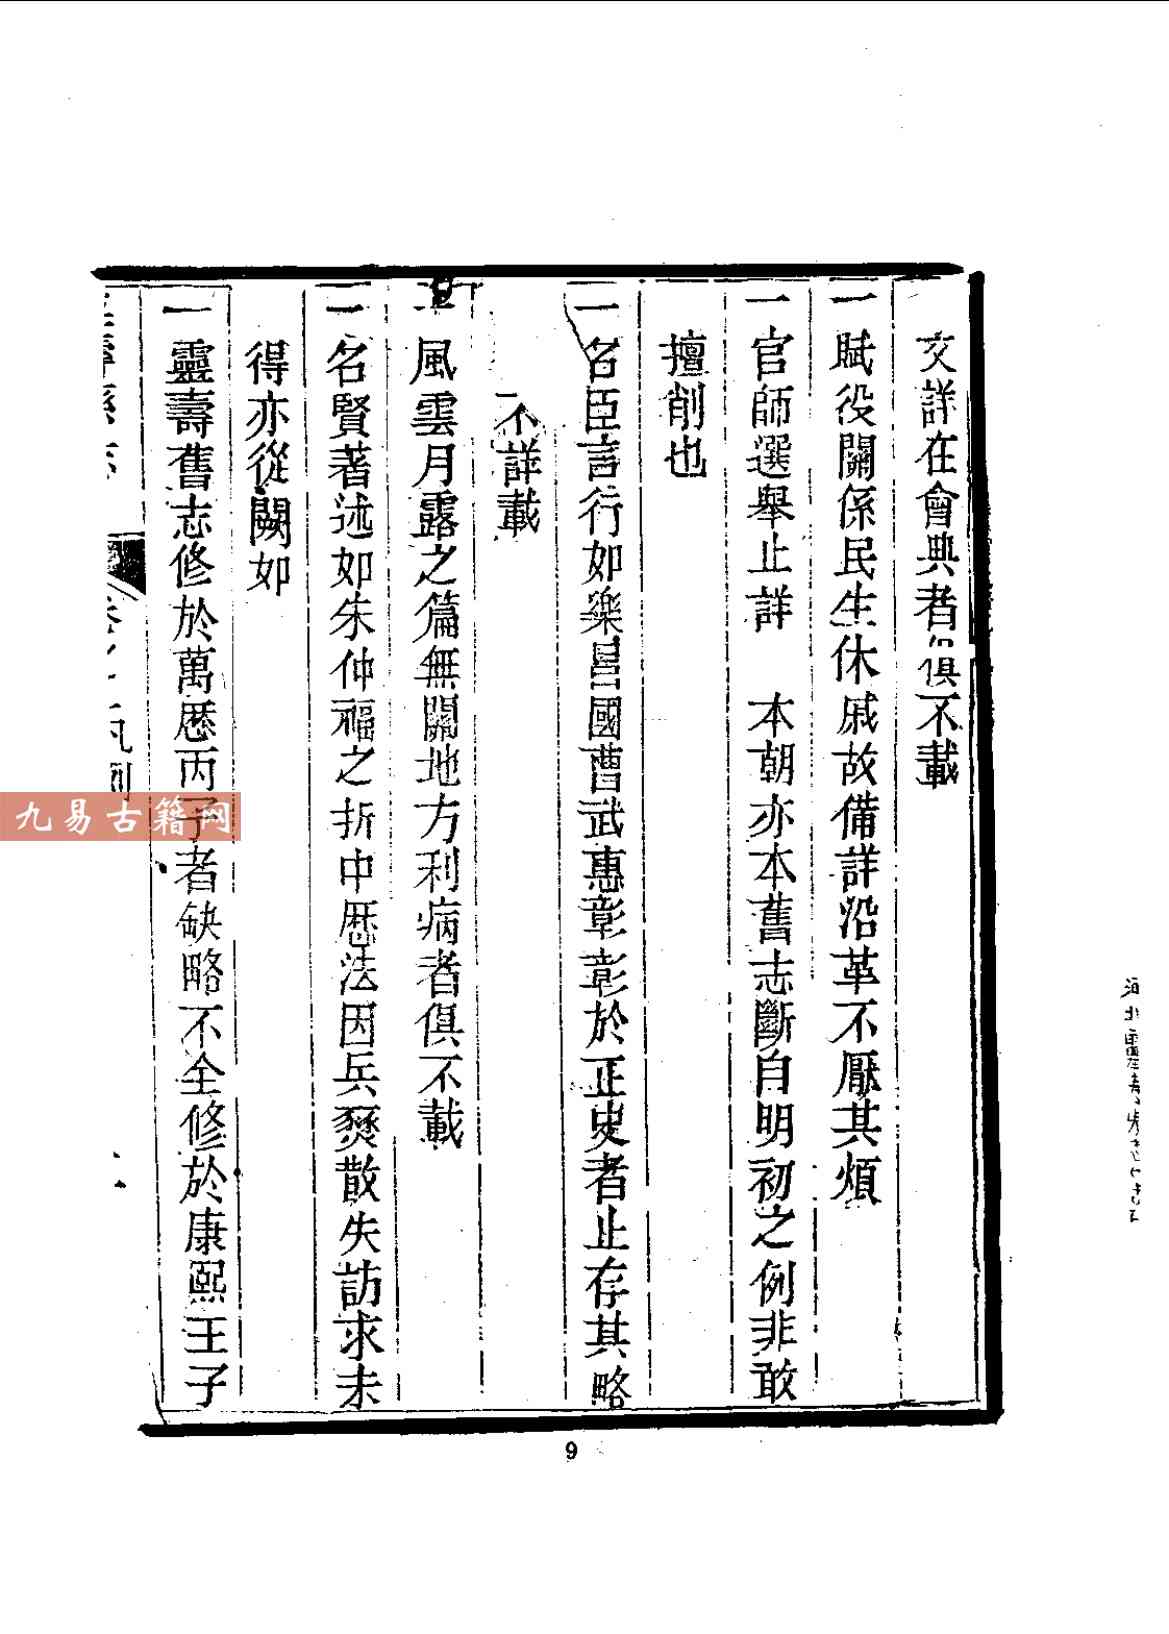 文詳在會典者俱不載
一賦役關係民生休戚故備詳沿革不厭其煩
一官師選舉止詳　本朝亦本舊志斷自明初之例非敢
擅削也
一名臣言行如樂昌國曹武惠彰彰於正史者止存其略
不詳載
一風雲月露之篇無關地方利病者俱不載
一名賢著述如朱仲福之折中曆法因兵燹散失訪求未
得亦從闕如
一靈壽舊志修於萬曆丙子者缺略不全修於康熙壬子
凡例
9
九易古籍网